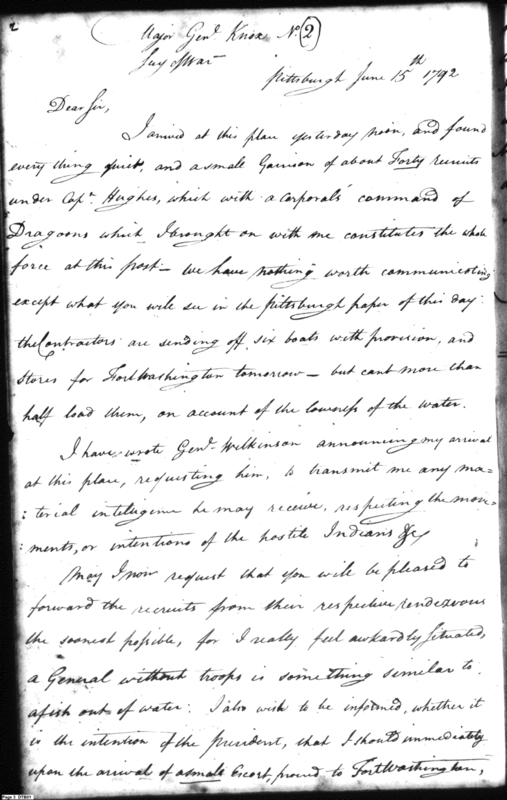 2
Major Genl. Knox No. 2
Secy of War
Pittsburgh June 15th 1792
Dear Sir,
I arrived at this place yesterday noon, and found
every thing quiet, and a small Garrison of about Forty recruits
under Capn. Hughes, which with a Corporals command of
Dragoons which I brought on with me constitutes the whole
force at this post— we have nothing worth communicating
except what you will see in the Pittsburgh paper of this day.
the Contractors are sending off six boats with provision, and
stores for Fort Washington tomorrow— but cant more than
half load them, on account of the lowness of the water.
I have wrote Genl. Wilkinson announcing my arrival
at this place, requesting him, to transmit me any ma-
:terial intelligence he may receive, respecting the move-
:ments, or intentions of the hostile Indians &c
May I now request that you will be pleased to
forward the recruits from their respective rendezvous
the soonest possible, for I really feel awkardly situated,
a General without troops is something similar to
a fish out of water. I also wish to be informed, whether it
is the intention of the President, that I should immediately
upon the arrival of a small Escort, proceed to Fort Washington,
Page 3